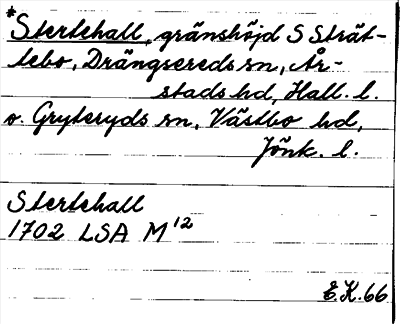 *Stertehall, gränshöjd S Strät-
tebo, Drängsereds sn, År-
stads hd, Hall. l.
o. Gryteryds sn, Västbo hd,
Jönk. l.
Stertehall
1702 LSA M¹²
E.K.66